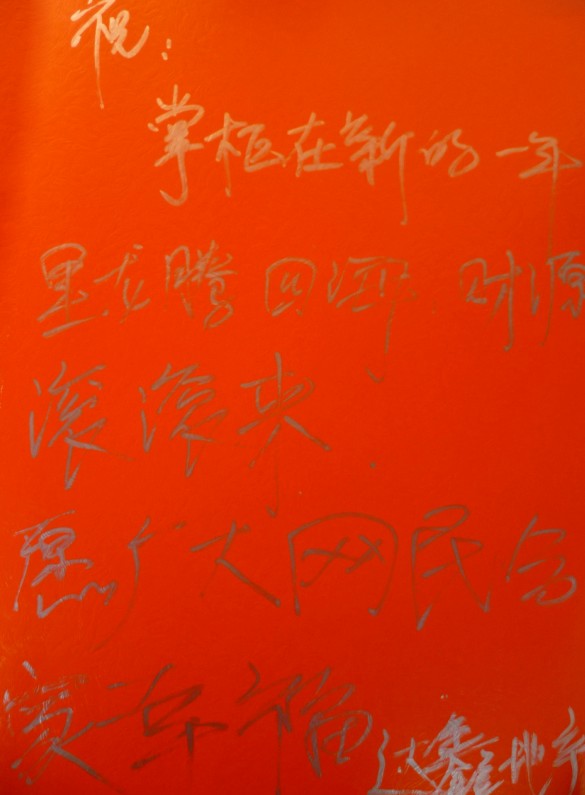 祝：
掌柜在新的一年
里龙腾四海、财源
滚滚来.
愿广大网民合
家幸福
达鑫地产